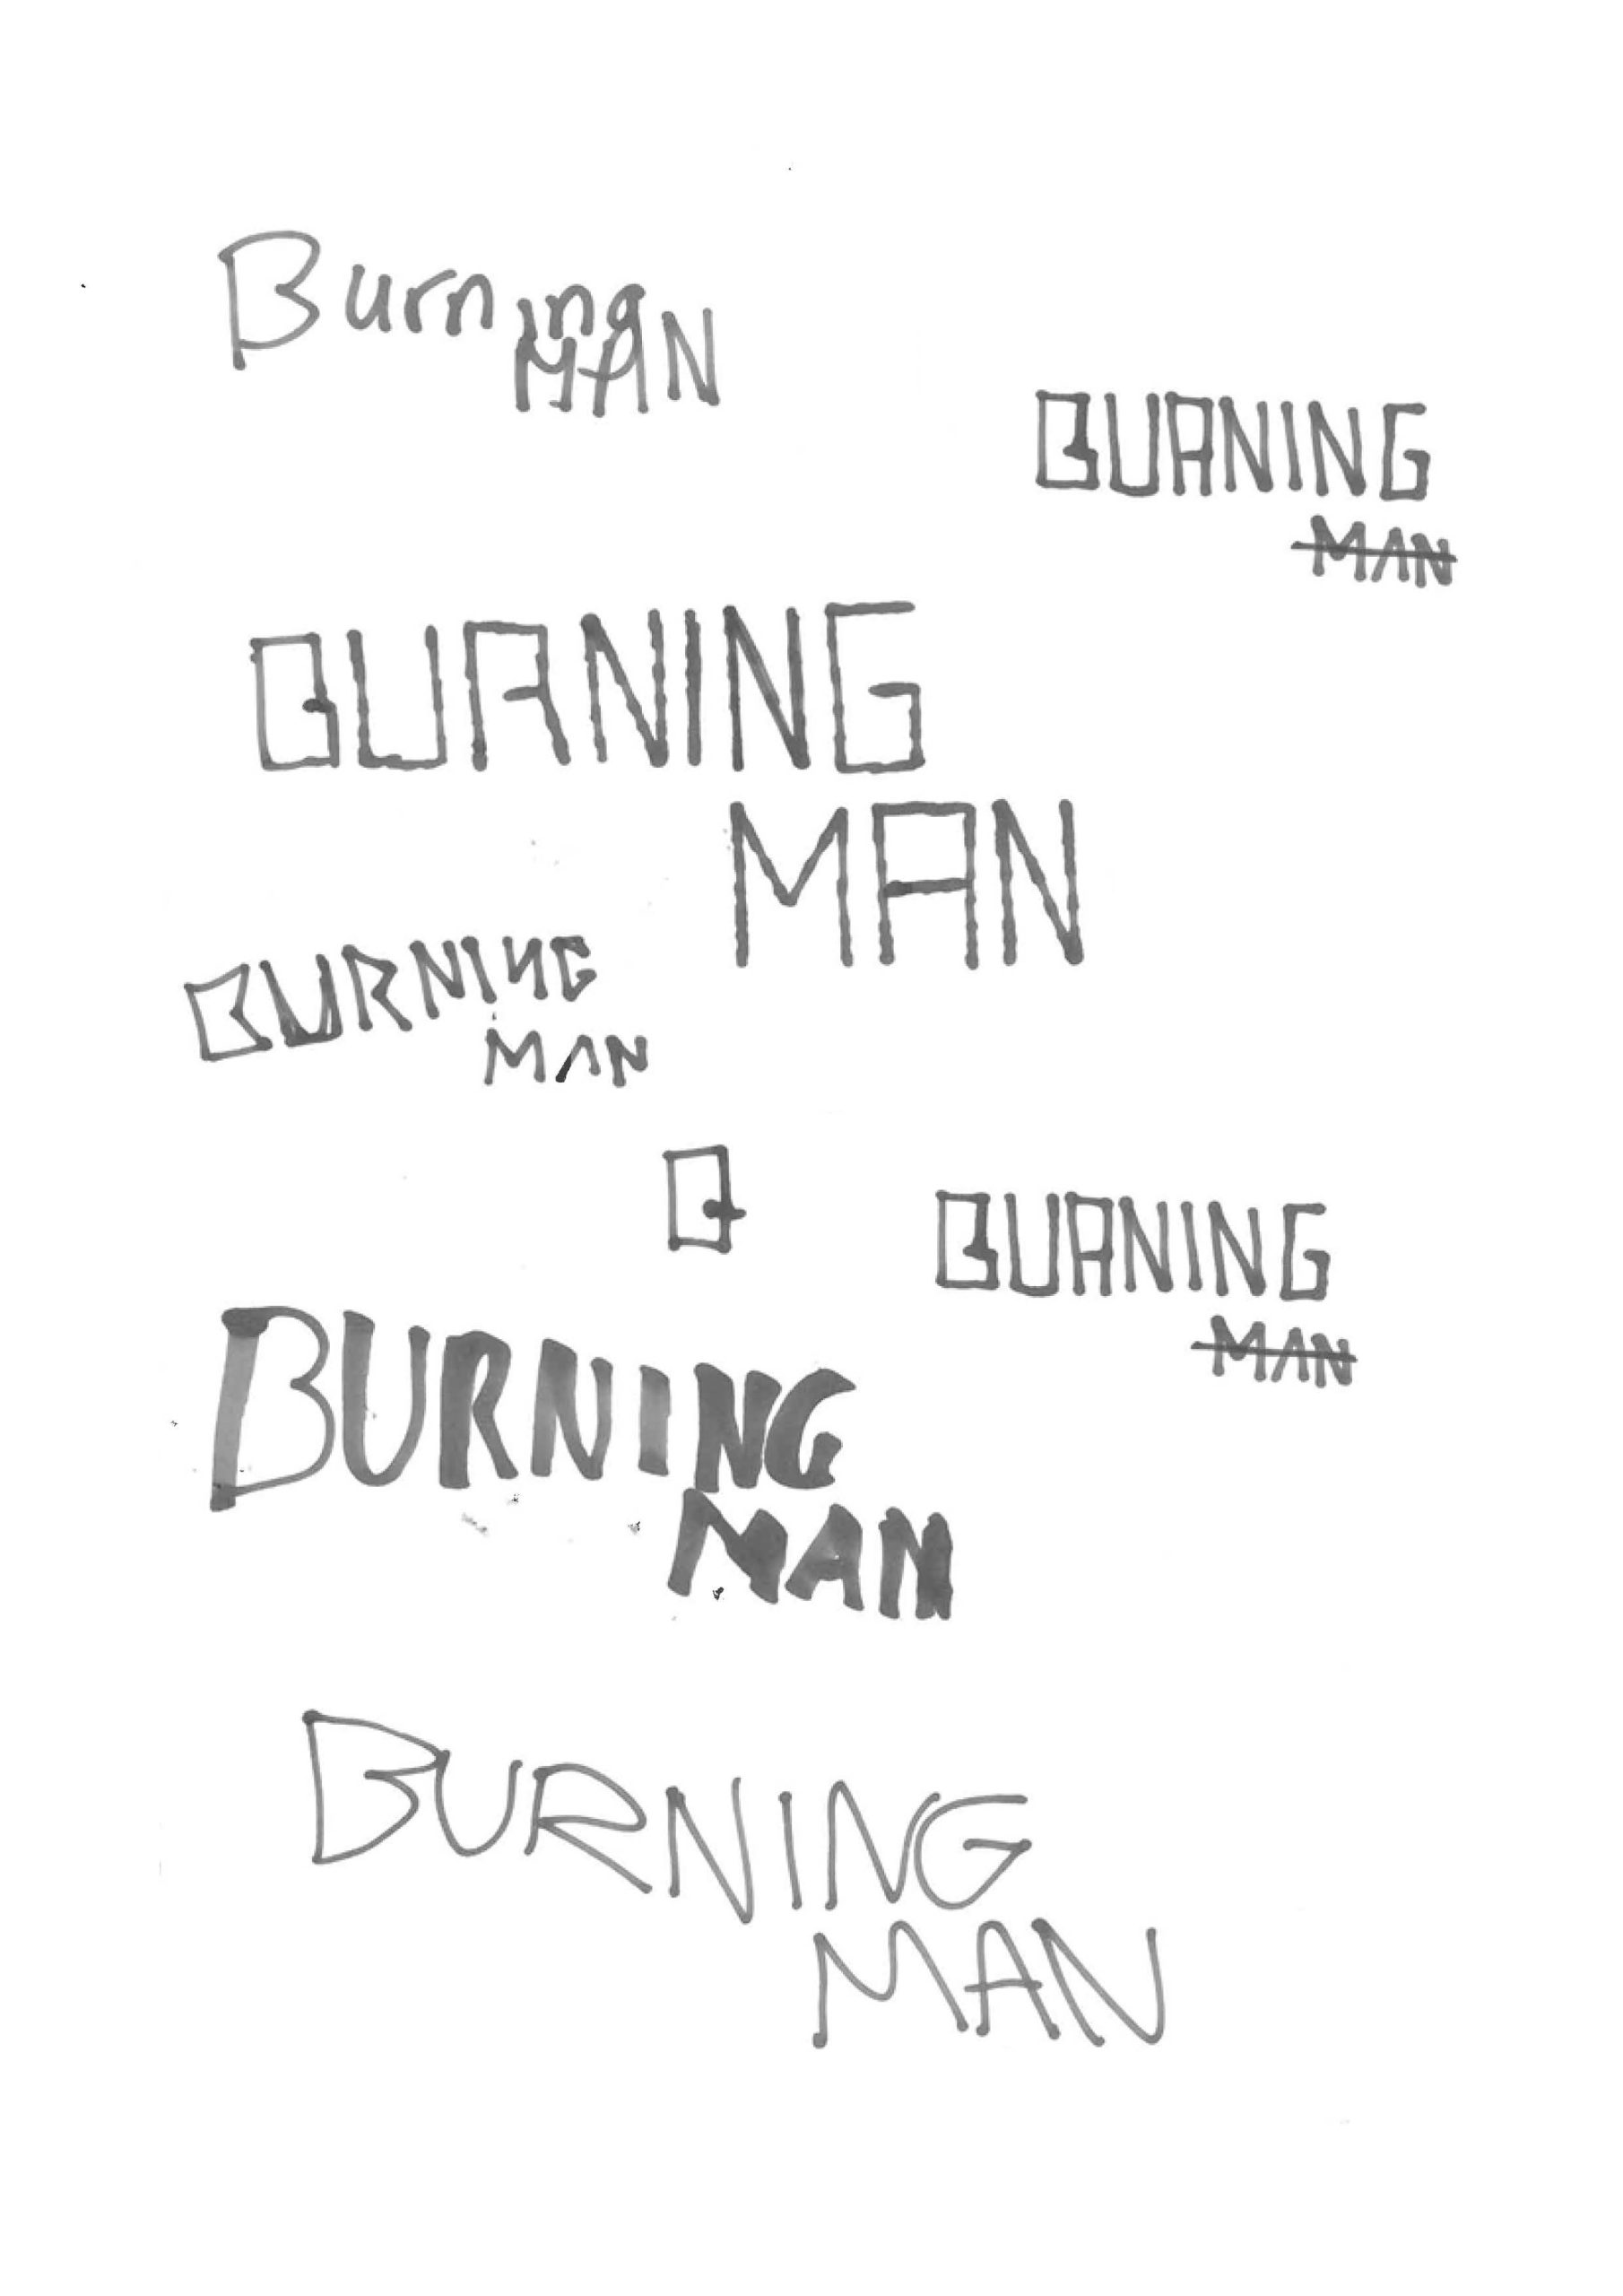 Burning
MAN
BURNING
MAN
BURNING
MAN
BURNING
MAN
B
BURNING
MAN
BURNING
MAN
BURNING
MAN